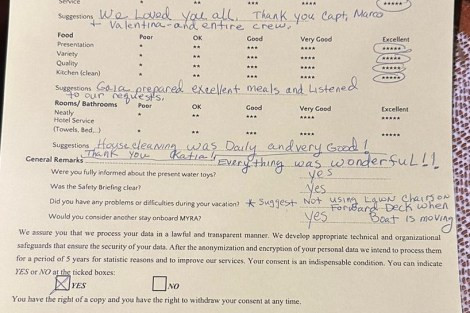 Service *****
Suggestions We Loved you all. Thank you Capt, Marco
+ Valentina - and entire crew.
Food Poor OK Good Very Good Excellent
Presentation * ** *** **** *****
Variety * ** *** **** *****
Quality * ** *** **** *****
Kitchen (clean) * ** *** **** *****
Suggestions prepared excellent meals and Listened
to our requests.
Rooms/ Bathrooms Poor OK Good Very Good Excellent
Neatly * ** *** **** *****
Hotel Service
(Towels, Bed...) * ** *** **** *****
Suggestions Housecleaning was Daily and very Good!
Thank you Katia!
General Remarks Everything was wonderful!!
Were you fully informed about the present water toys? yes
Was the Safety Briefing clear? Yes
Did you have any problems or difficulties during your vacation? * Suggest Not using Lawn Chairs on
Forward Deck when
Boat is moving
Would you consider another stay onboard MYRA? yes
We assure you that we process your data in a lawful and transparent manner. We develop appropriate technical and organizational
safeguards that ensure the security of your data. After the anonymization and encryption of your personal data we intend to process them
for a period of 5 years for statistic reasons and to improve our services. Your consent is an indispensable condition. You can indicate
YES or NO at the ticked boxes:
YES NO
You have the right of a copy and you have the right to withdraw your consent at any time.